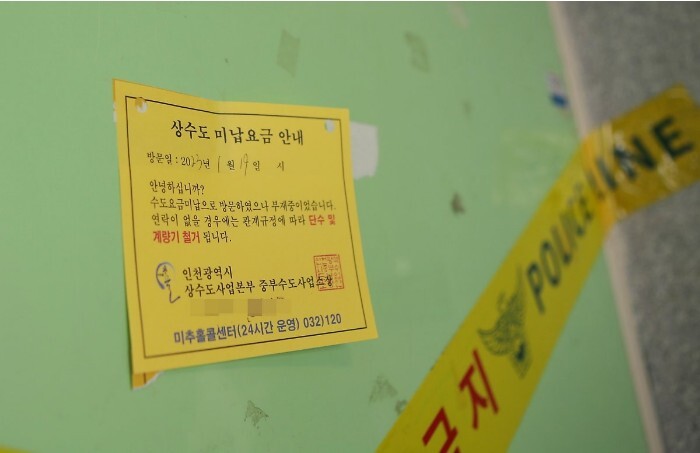 상수도 미납요금 안내
방문일 : 2023년 1월 17일 시
안녕하십니까?
수도요금미납으로 방문하였으나 부재중이었습니다.
연락이 없을 경우에는 관계규정에 따라 단수 및
계량기 철거 됩니다.
인천광역시
상수도사업본부 중부수도사업소장
미추홀콜센터(24시간 운영) 032)120
POLICE LINE
근지